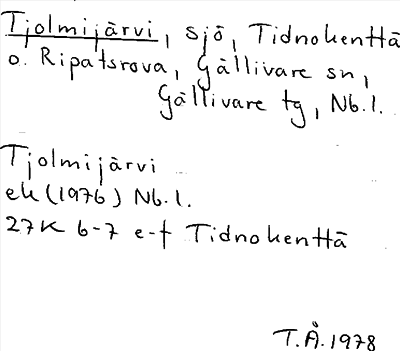 Tjolmijärvi, sjö, Tidnokenttä
o. Ripatsrova, Gällivare sn,
Gällivare tg, Nb.l.
Tjolmijärvi
ek (1976) Nb.l.
27K 6-7 e-f Tidnokenttä
T.Å. 1978